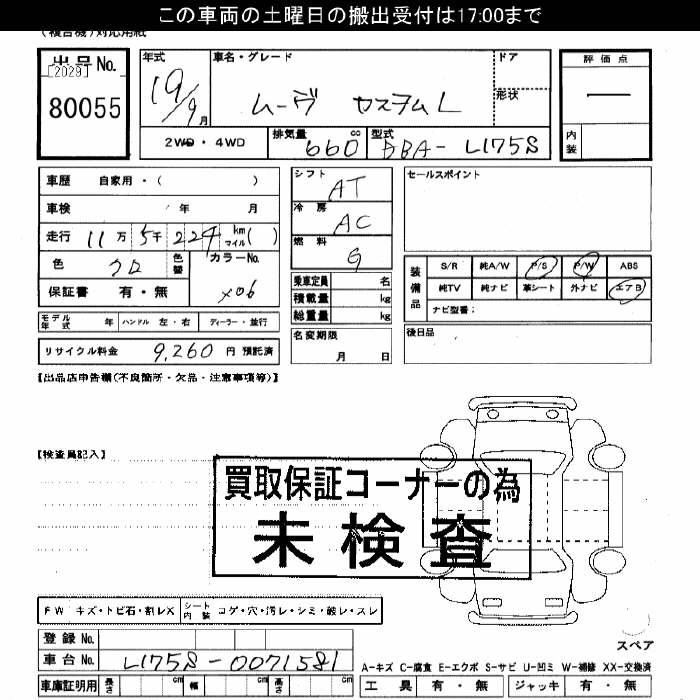 この車両の土曜日の搬出受付は17:00まで
(複合機)対応用紙
出品No.
[2029]
80055
年式
19/9月
車名・グレード
ムーヴ カスタムL
ドア
形状
2WD・4WD
排気量 660 cc
型式 DBA-L175S
評価点
内装
車歴 自家用・( )
車検 年 月
走行 11万5千224 km マイル( )
色 クロ
色替
カラーNo. X06
保証書 有・無
モデル年式 年 ハンドル 左・右 ディーラー・並行
リサイクル料金 9,260 円 預託済
シフト AT
冷房 AC
燃料 G
乗車定員 名
積載量 kg
総重量 kg
名変期限
月 日
セールスポイント
装備品
S/R 純A/W P/S P/W ABS
純TV 純ナビ 革シート 外ナビ エアB
ナビ型番:
後日品
【出品店申告欄(不良箇所・欠品・注意事項等)】
【検査員記入】
買取保証コーナーの為
未検査
FW キズ・トビ石・割レX
シート内装 コゲ・穴・汚レ・シミ・破レ・スレ
登録No.
車台No. L175S-0071581
車庫証明用 長さ cm 幅 cm 高さ cm
スペア
A-キズ C-腐食 E-エクボ S-サビ U-凹ミ W-補修 XX-交換済
工具 有・無 ジャッキ 有・無